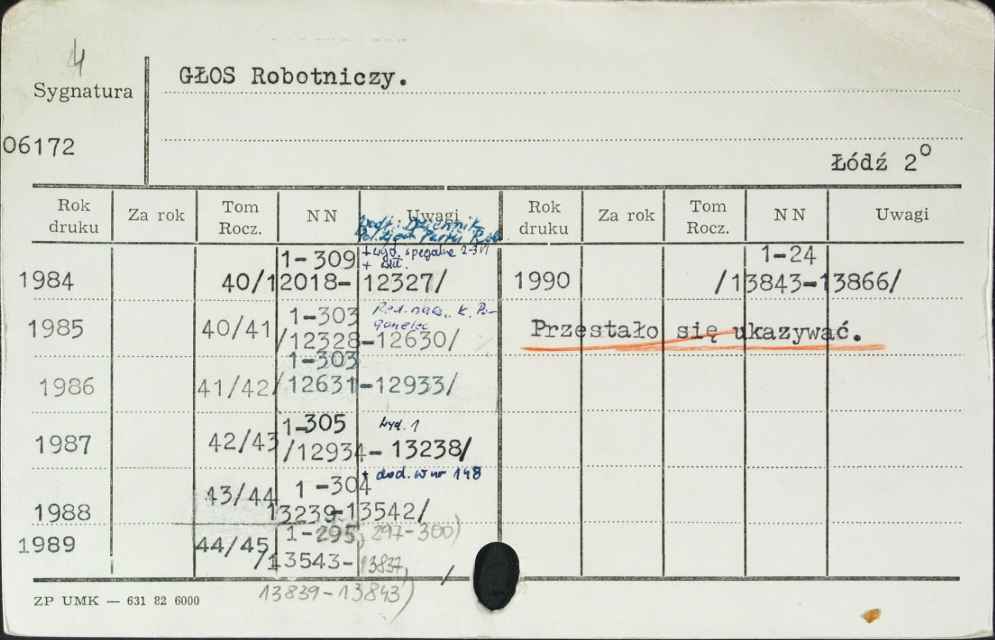 4
GŁOS Robotniczy.
Sygnatura
06172
Łódź 2°
Rok druku Za rok Tom Rocz. NN Uwagi Rok druku Za rok Tom Rocz. NN Uwagi
Dziennik
Partii Rob
1984 40/ 1-309 + wyd. specjalne
12018- 12327/
1985 40/41 1-303 Red. nacz. K. Po-
/12328-12630/
1986 41/42 1-303
/12631-12933/
1987 42/43 1-305 wyd. 1
/12934- 13238/
1988 43/44 1-304 + dod. w nr 148
13239-13542/
1989 44/45 1-295, 297-300)
/13543- 13837, /
13839-13843)
1990 1-24
/13843-13866/
Przestało się ukazywać.
ZP UMK — 631 82 6000